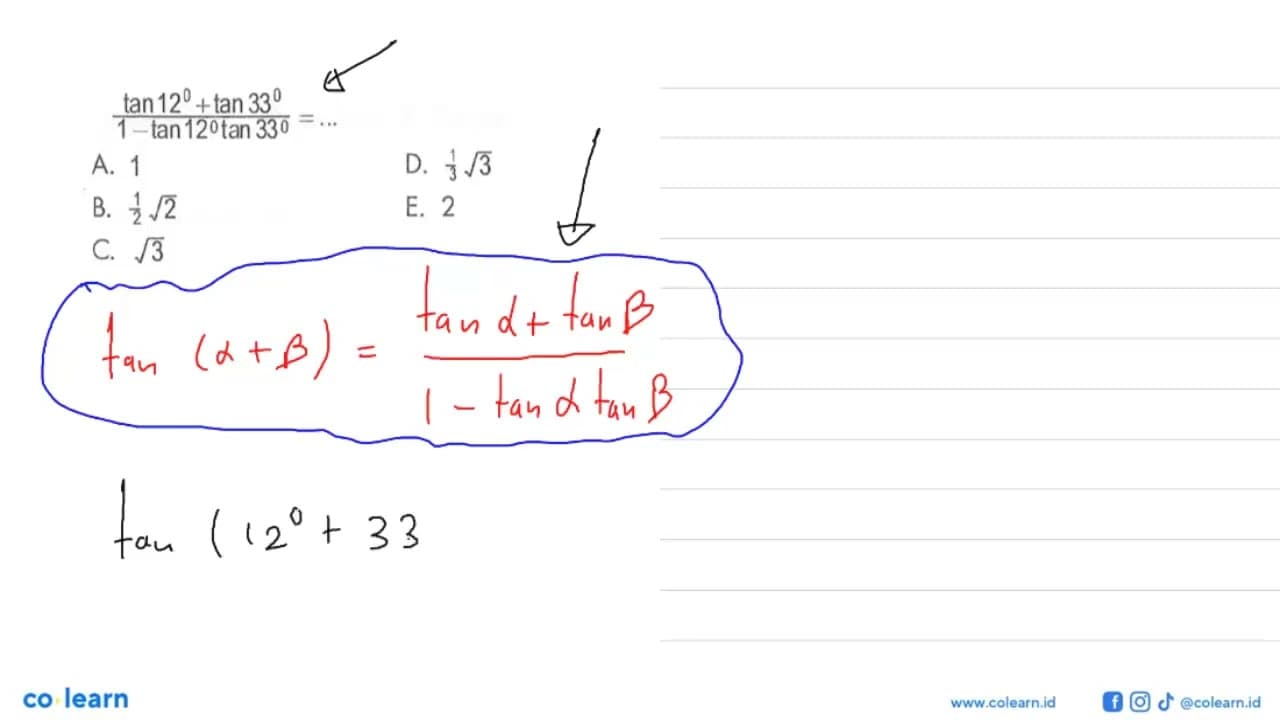 tan 12⁰ + tan 33⁰
1 – tan 12⁰ tan 33⁰ = ...
A. 1
B. ½ √2
C. √3
D. ⅓ √3
E. 2
tan (α + β) = tan α + tan β
1 – tan α tan β
tan (12⁰ + 33
co learn
www.colearn.id @colearn.id